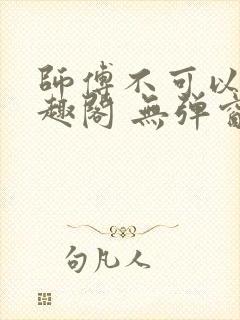 師傅不可以
趣閣 無彈窗
句凡人